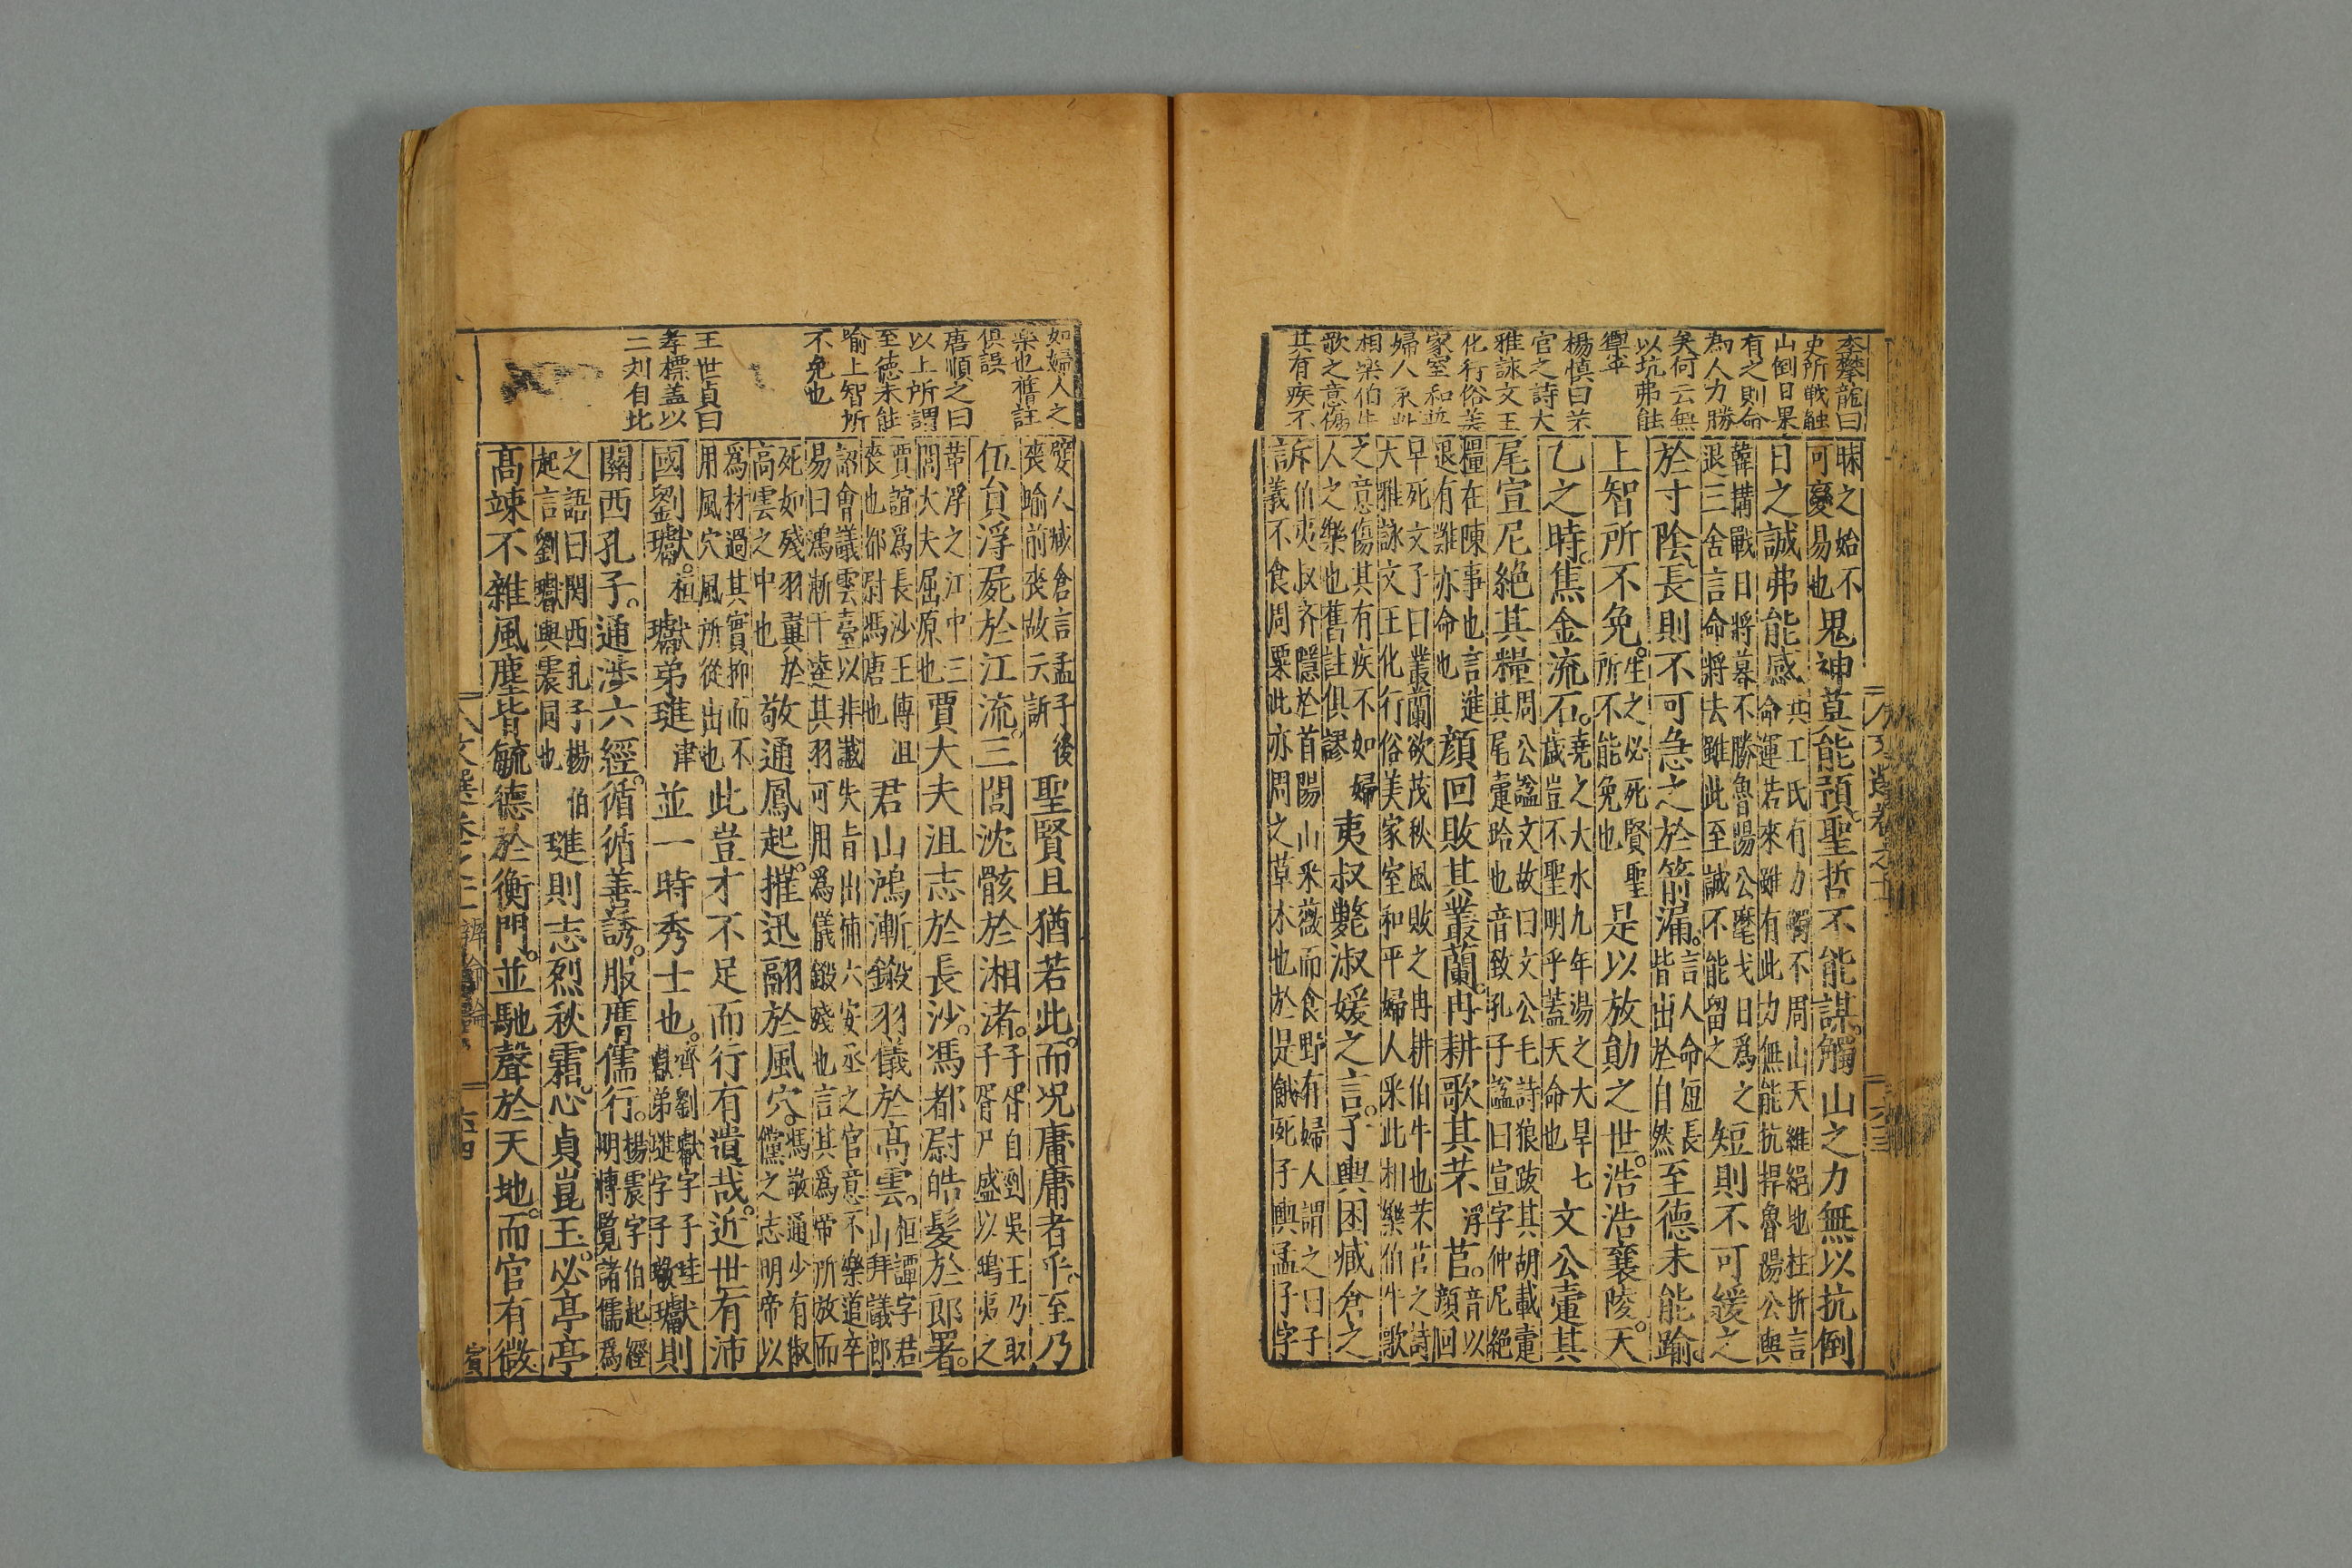 李攀龍曰
史所戰触
山倒日果
有之則命
為人力勝
矣何云無
以坑弗能
楊慎曰芣
官之詩大
雅詠文王
化行俗美
家室和平
婦人采此
相樂伯牛
歌之意傷
其有疾不
昧之始不
可變易也
鬼神莫能預聖哲不能謀。觸山之力無以抗倒
日之誠弗能感
共工氏有力觸不周山天維絕地柱折言
命運若來雖有此力無能抗捍魯陽公與
韓搆戰日將暮不勝魯陽公麾戈日為之
退三舍言命將去雖此至誠不能留之
短則不可緩之
於寸陰。長則不可急之於箭漏。
言人命短長
皆出於自然
至德未能踰。
上智所不免。
生之必死賢聖
所不能免也
是以放勛之世。浩浩襄陵。天
乙之時。焦金流石。
堯之大水九年湯之大旱七
歲豈不聖明乎蓋天命也
文公疐其
尾宣尼絕其糧
周公諡文故曰文公毛詩狼跋其胡載疐
其尾疐跲也音致孔子諡曰宣字仲尼絕
糧在陳事也言進
退有難亦命也
顏回敗其叢蘭。冉耕歌其芣
浮
苢。
音以
顏回
早死文子曰叢蘭欲茂秋風敗之冉耕伯牛也芣苢之詩
大雅詠文王化行俗美家室和平婦人采此相樂伯牛歌
之意傷其有疾不如婦
人之樂也舊註俱謬
夷叔斃淑媛之言。子輿困臧倉之
訴
伯夷叔齊隱於首陽山采薇而食野有婦人謂之曰子
義不食周粟此亦周之草木也於是餓死子輿孟子字
如婦人之
樂也舊註
俱誤
唐順之曰
以上所謂
至德未能
踰上智所
不免也
王世貞曰
孝標蓋以
二刘自比
嬖人臧倉言孟子後
喪踰前喪故云訴
聖賢且猶若此。而况庸庸者乎。至乃
伍員浮屍於江流。三閭沈骸於湘渚。
子胥自剄吳王乃取
子胥尸盛以鴟夷之
革浮之江中三
閭大夫屈原也
賈大夫沮志於長沙。馮都尉皓髮於郎署。
賈誼為長沙王傅沮
喪也都尉馮唐也
君山鴻漸鎩羽儀於高雲。
桓譚字君
山拜議郎
詔會議雲臺以非讖失旨出補六安丞之官意不樂道卒
易曰鴻漸于逵其羽可用為儀鎩殘也言其為帝所放而
死如殘羽翼於
高雲之中也
敬通鳳起。摧迅翮於風穴。
馮敬通少有俶
儻之志明帝以
為材過其實抑而不
用風穴風所從出也
此豈才不足而行有遺哉。近世有沛
國劉瓛。
桓
瓛弟璡
津
並一時秀士也。
齊劉瓛字子珪
瓛弟璡字子璥
瓛則
關西孔子。通涉六經。循循善誘。服膺儒行。
楊震字伯起經
明博覽諸儒為
之語曰関西孔子楊伯
起言劉瓛與震同也
璡則志烈秋霜。心貞崑玉。必亭亭
高竦不雜風塵皆毓德於衡門。並馳聲於天地。而官有微